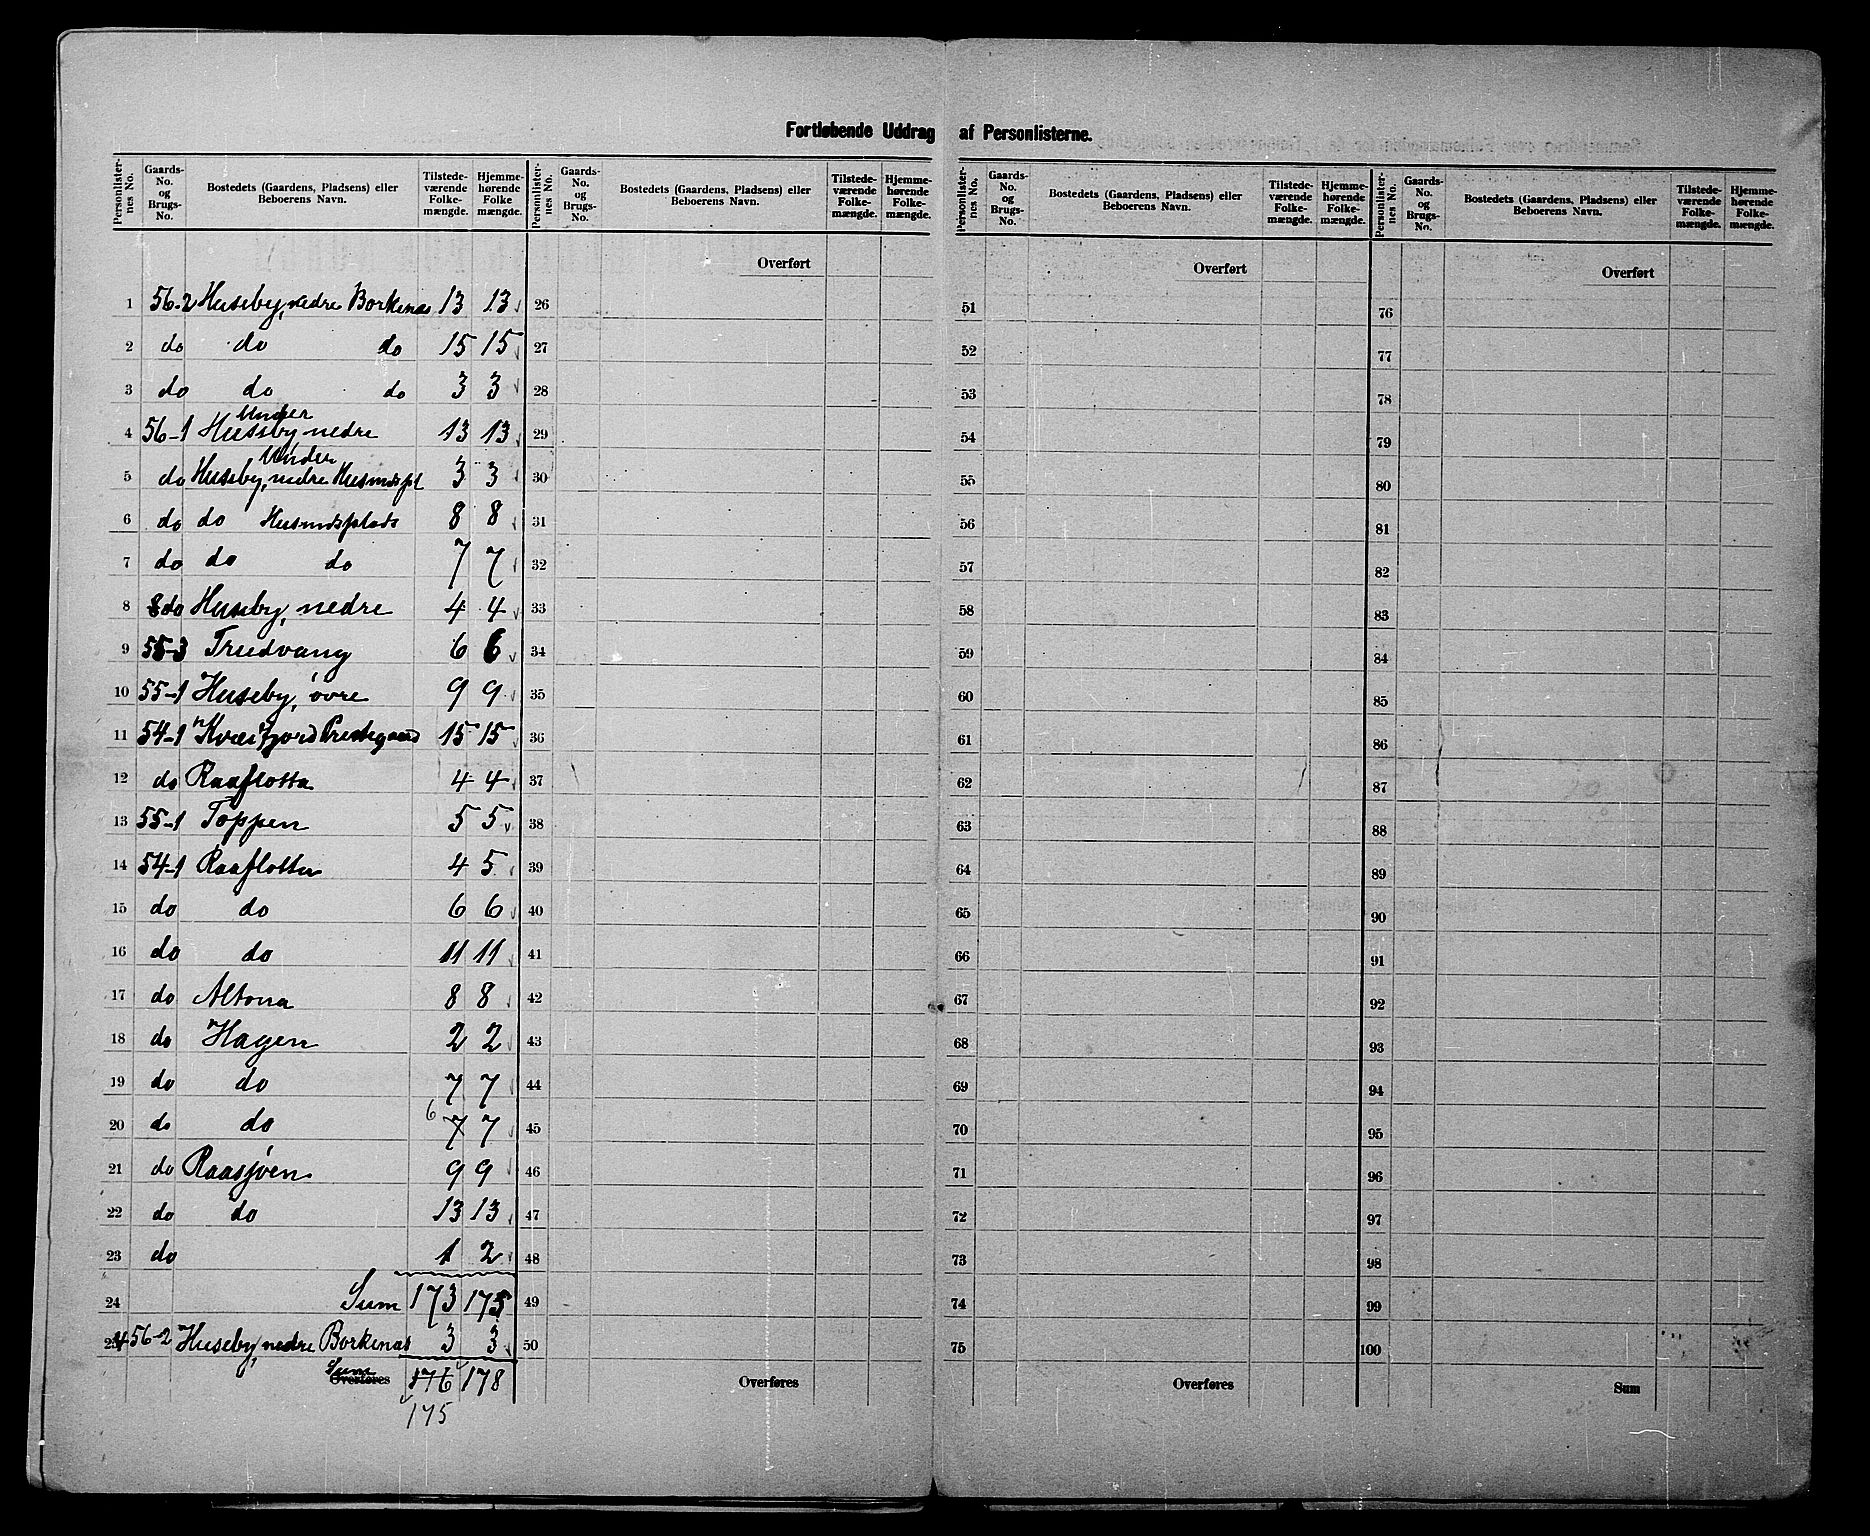 Fortløbende Uddrag af Personlisterne.
Personlister-nes No. Gaards-No. og Brugs-No. Bostedets (Gaardens, Pladsens) eller Beboerens Navn. Tilstede-værende Folke-mængde. Hjemme-hørende Folke mængde.
1 56-2 Huseby, nedre Borkenas 13 13
2 do do do 15 15
3 do do do 3 3
Under
4 56-1 Huseby nedre 13 13
Under
5 do Huseby, nedre Husmdspl 3 3
6 do do Husmdsplads 8 8
7 do do do 7 7
8 do Huseby, nedre 4 4
9 55-3 Trudvang 6 6
10 55-1 Huseby, övre 9 9
11 54-1 Kvæfjord Prestegaard 15 15
12 do Raaflotta 4 4
13 55-1 Toppen 5 5
14 54-1 Raaflotta 4 5
15 do do 6 6
16 do do 11 11
17 do Altona 8 8
18 do Hagen 2 2
19 do do 7 7
6
20 do do 7 7
21 do Raasjøen 9 9
22 do do 13 13
23 do 1 2
24 Sum 173 175
25 4 56-2 Huseby, nedre Borkenas 3 3
Sum
Overføres 176 178
175
Personlister-nes No. Gaards-No. og Brugs-No. Bostedets (Gaardens, Pladsens) eller Beboerens Navn. Tilstede-værende Folke-mængde. Hjemme-hørende Folke-mængde.
Overført
26
27
28
29
30
31
32
33
34
35
36
37
38
39
40
41
42
43
44
45
46
47
48
49
50
Overføres
Personlister-nes No. Gaards-No. og Brugs-No. Bostedets (Gaardens, Pladsens) eller Beboerens Navn. Tilstede-værende Folke-mængde. Hjemme-hørende Folke-mængde.
Overført
51
52
53
54
55
56
57
58
59
60
61
62
63
64
65
66
67
68
69
70
71
72
73
74
75
Overføres
Personlister-nes No. Gaards-No. og Brugs-No. Bostedets (Gaardens, Pladsens) eller Beboerens Navn. Tilstede-værende Folke-mængde. Hjemme-hørende Folke-mængde.
Overført
76
77
78
79
80
81
82
83
84
85
86
87
88
89
90
91
92
93
94
95
96
97
98
99
100
Sum